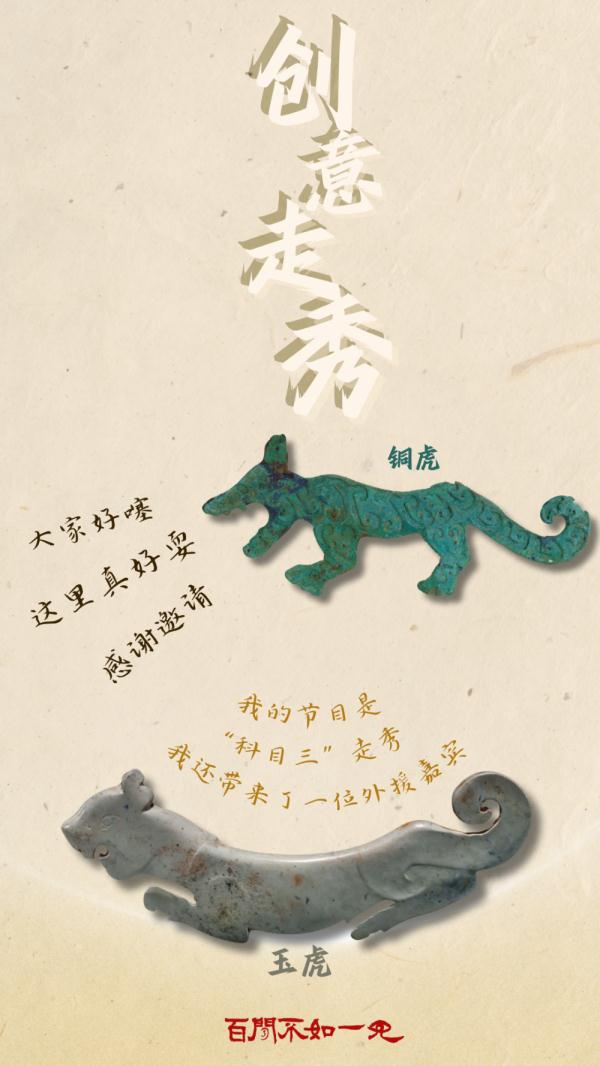 创意走秀
铜虎
大家好噻
这里真好耍
感谢邀请
我的节目是
“科目三”走秀
我还带来了一位外援嘉宾
玉虎
百闻不如一见